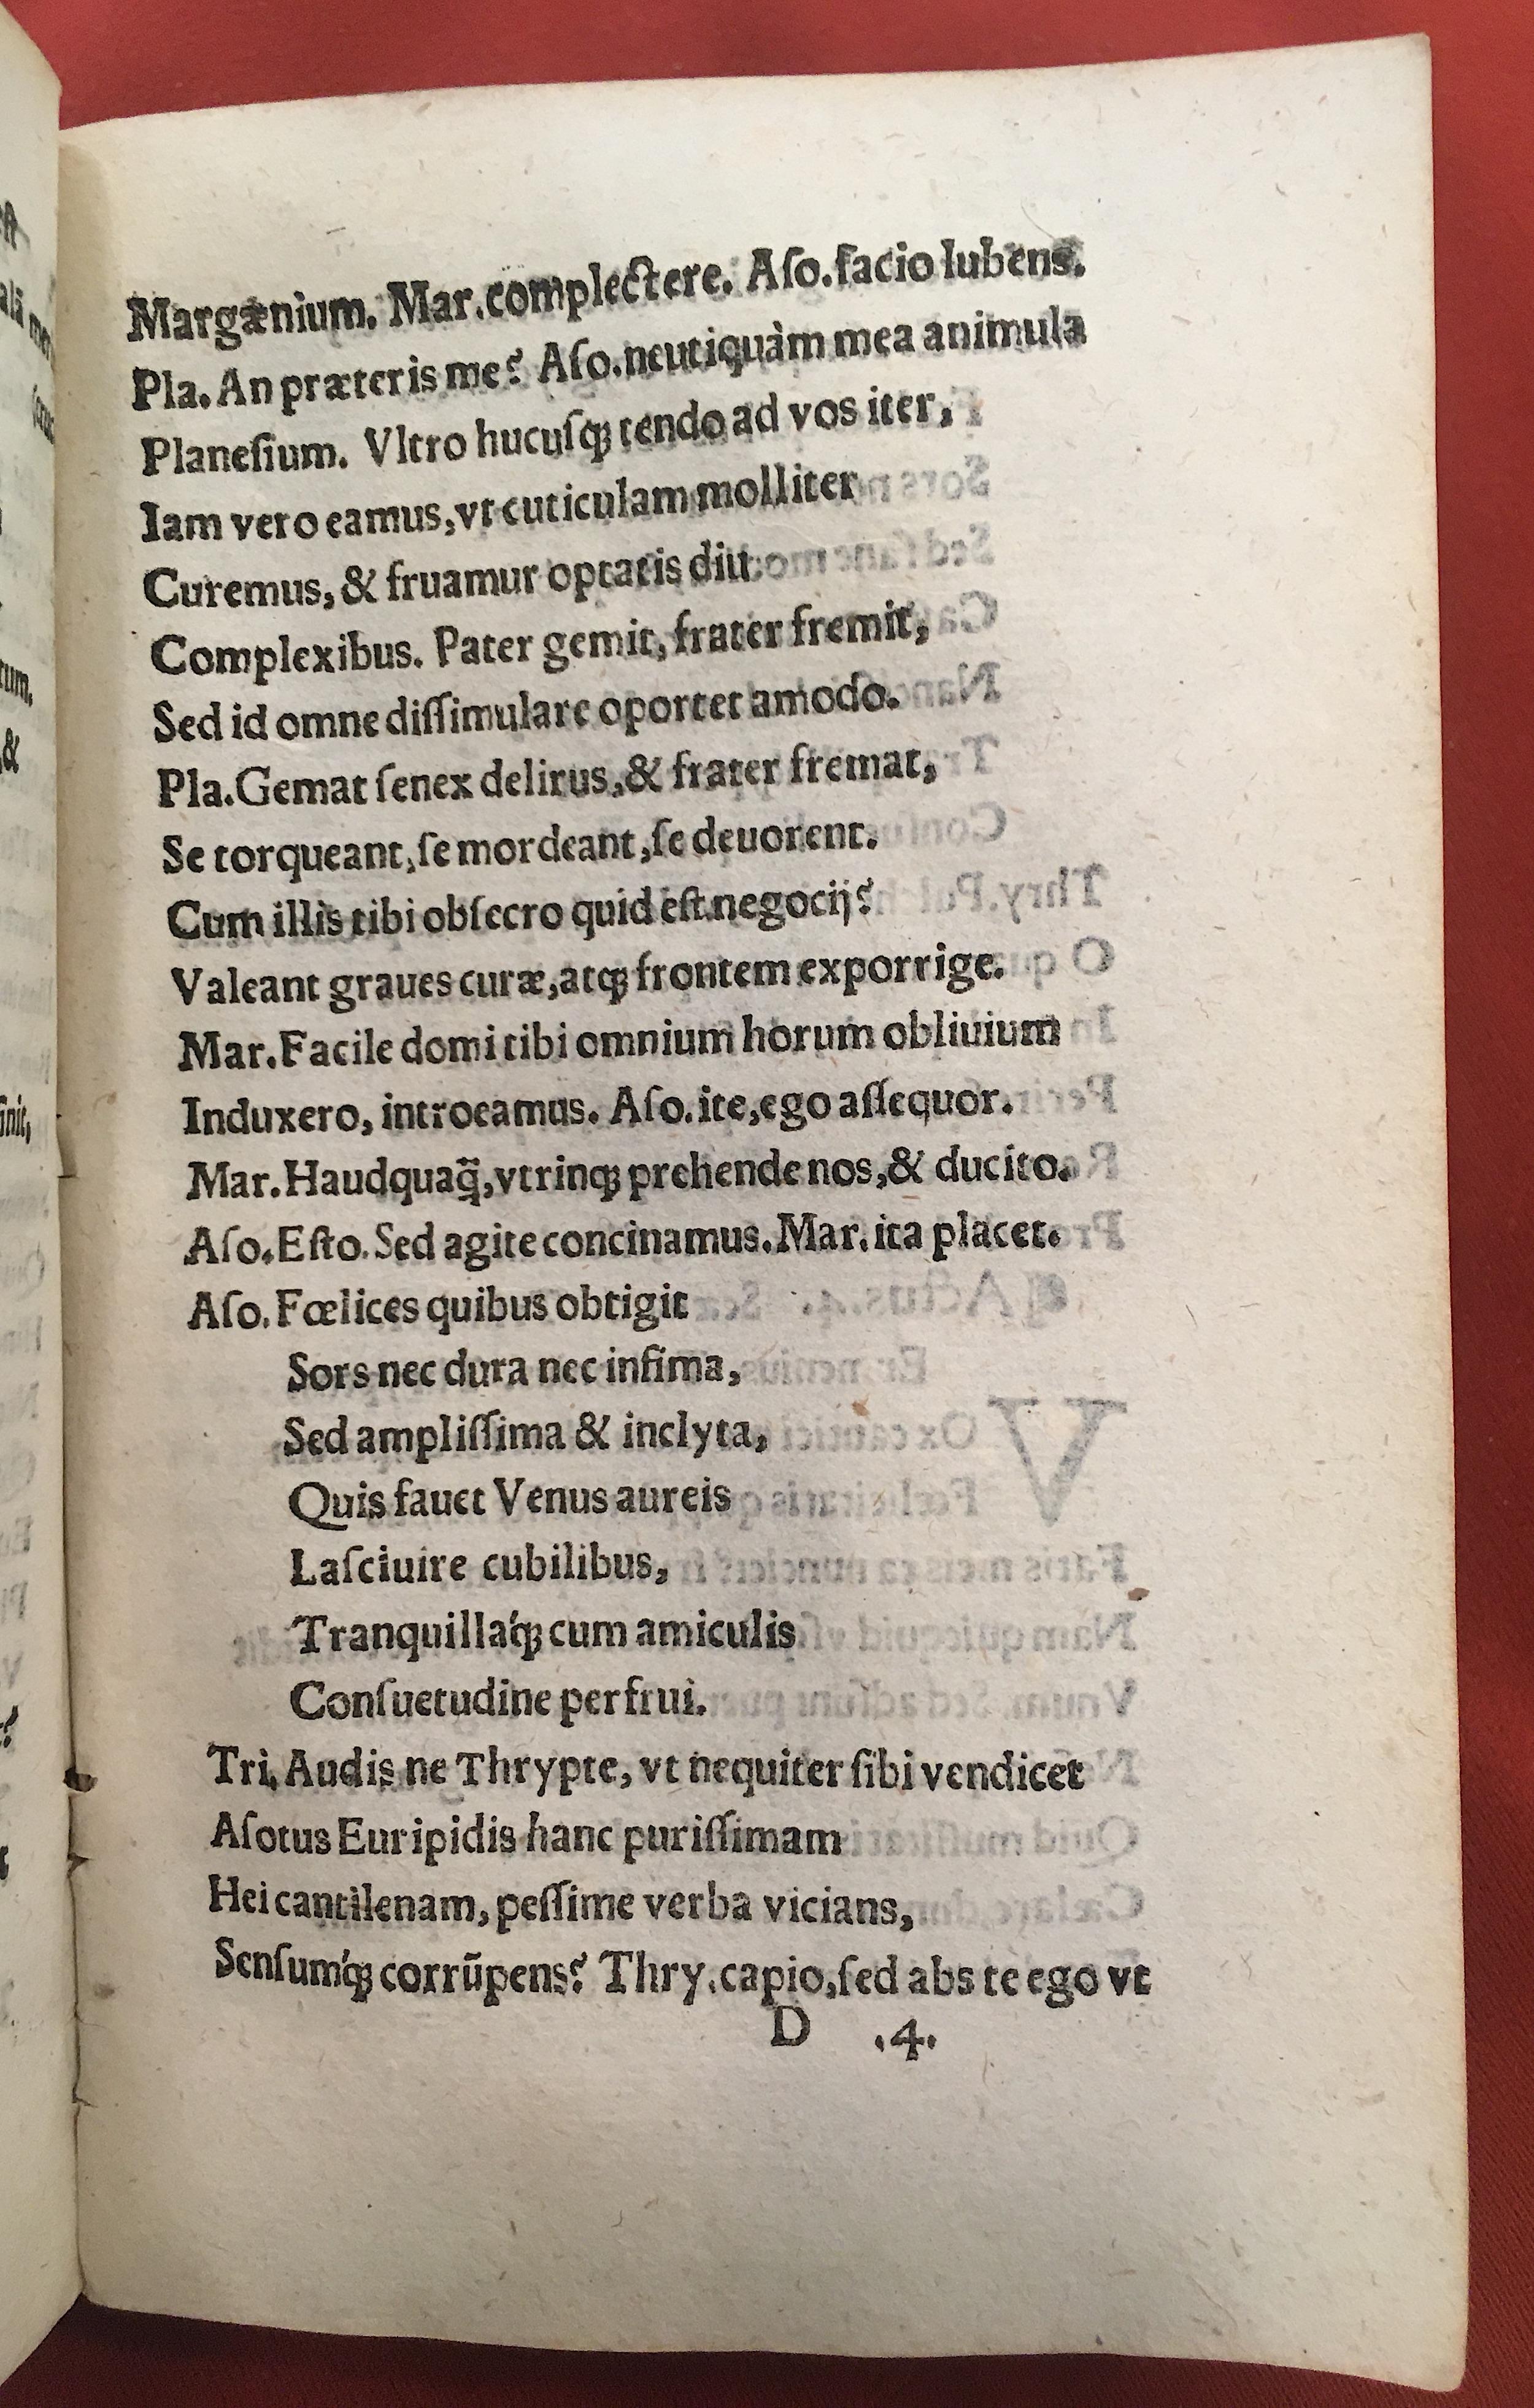 Margænium. Mar.complectere. Aſo.facio lubens.
Pla. An præteris me? Aſo.neutiquàm mea animula
Planeſium. Vltro hucuſqꝫ tendo ad vos iter,
Iam vero eamus,vt cuticulam molliter
Curemus,& fruamur optatis diu
Complexibus. Pater gemit, frater fremit,
Sed id omne diſſimulare oportet amodo.
Pla.Gemat ſenex delirus,& frater fremat,
Se torqueant,ſe mordeant,ſe deuorent.
Cum illis tibi obſecro quid eſt negocij?
Valeant graues curæ,atqꝫ frontem exporrige.
Mar.Facile domi tibi omnium horum obliuium
Induxero, introeamus. Aſo.ite,ego aſſequor.
Mar.Haudquaq̃,vtrinqꝫ prehende nos,& ducito.
Aſo.Eſto. Sed agite concinamus.Mar.ita placet.
Aſo.Fœlices quibus obtigit
Sors nec dura nec infima,
Sed ampliſſima & inclyta,
Quis fauet Venus aureis
Laſciuire cubilibus,
Tranquilla'qꝫ cum amiculis
Conſuetudine perfrui.
Tri.Audis ne Thrypte, vt nequiter ſibi vendicet
Aſotus Euripidis hanc puriſſimam
Hei cantilenam, peſſime verba vicians,
Senſum'qꝫ corrũpens? Thry.capio,ſed abs te ego vt
D .4.